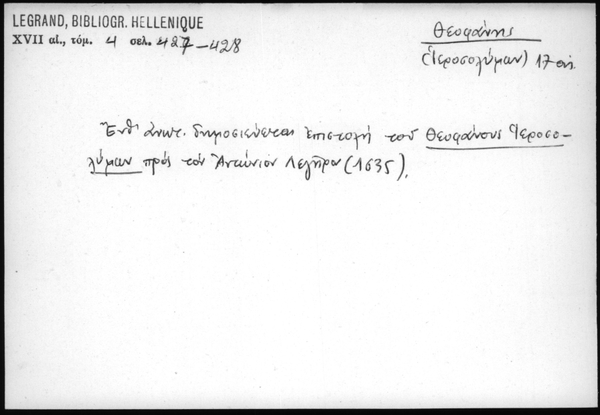 LEGRAND, BIBLIOGR. HELLENIQUE
XVII αἰ., τόμ. 4 σελ. 427-428
Θεοφάνης
(Ἱεροσολύμων) 17 αἰ.
Ἔνθ' ἀνωτ. δημοσιεύεται ἐπιστολή τοῦ Θεοφάνους Ἱεροσο-
λύμων πρός τόν Ἀντώνιον Λεγῆρον (1635).